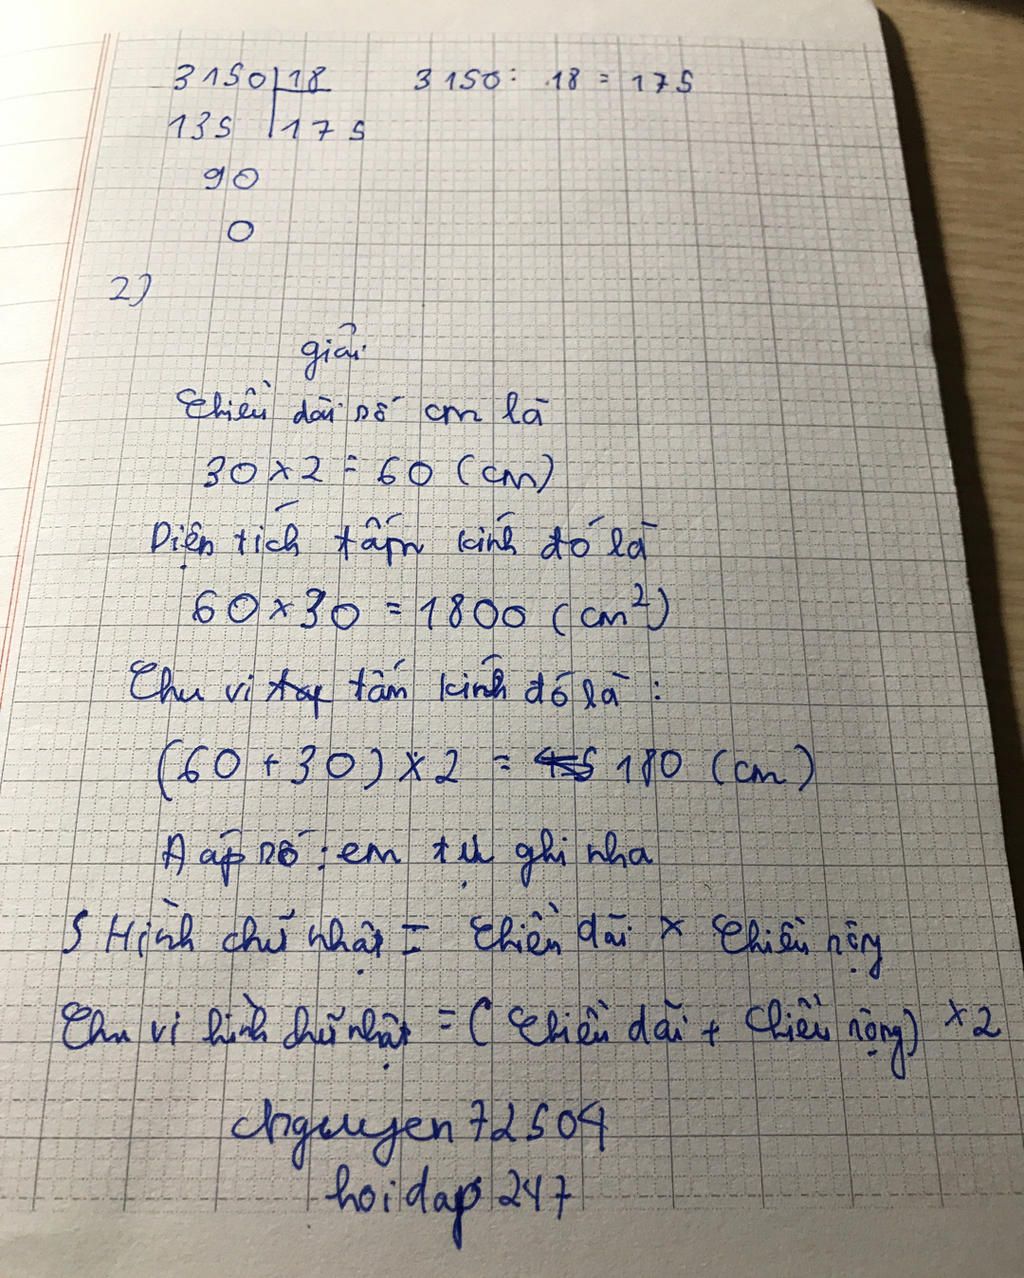 3150 18 3150 : 18 = 175
135 175
90
0
2)
giải
Chiều dài số cm là
30 x 2 = 60 (cm)
Diện tích tấm kính đó là
60 x 30 = 1800 (cm²)
Chu vi tấm kính đó là :
(60 + 30) x 2 = 180 (cm)
Đáp số : em tự ghi nha
S Hình chữ nhật = Chiều dài x Chiều rộng
Chu vi hình chữ nhật = (Chiều dài + Chiều rộng) x 2
chguyen72504
hoidap247